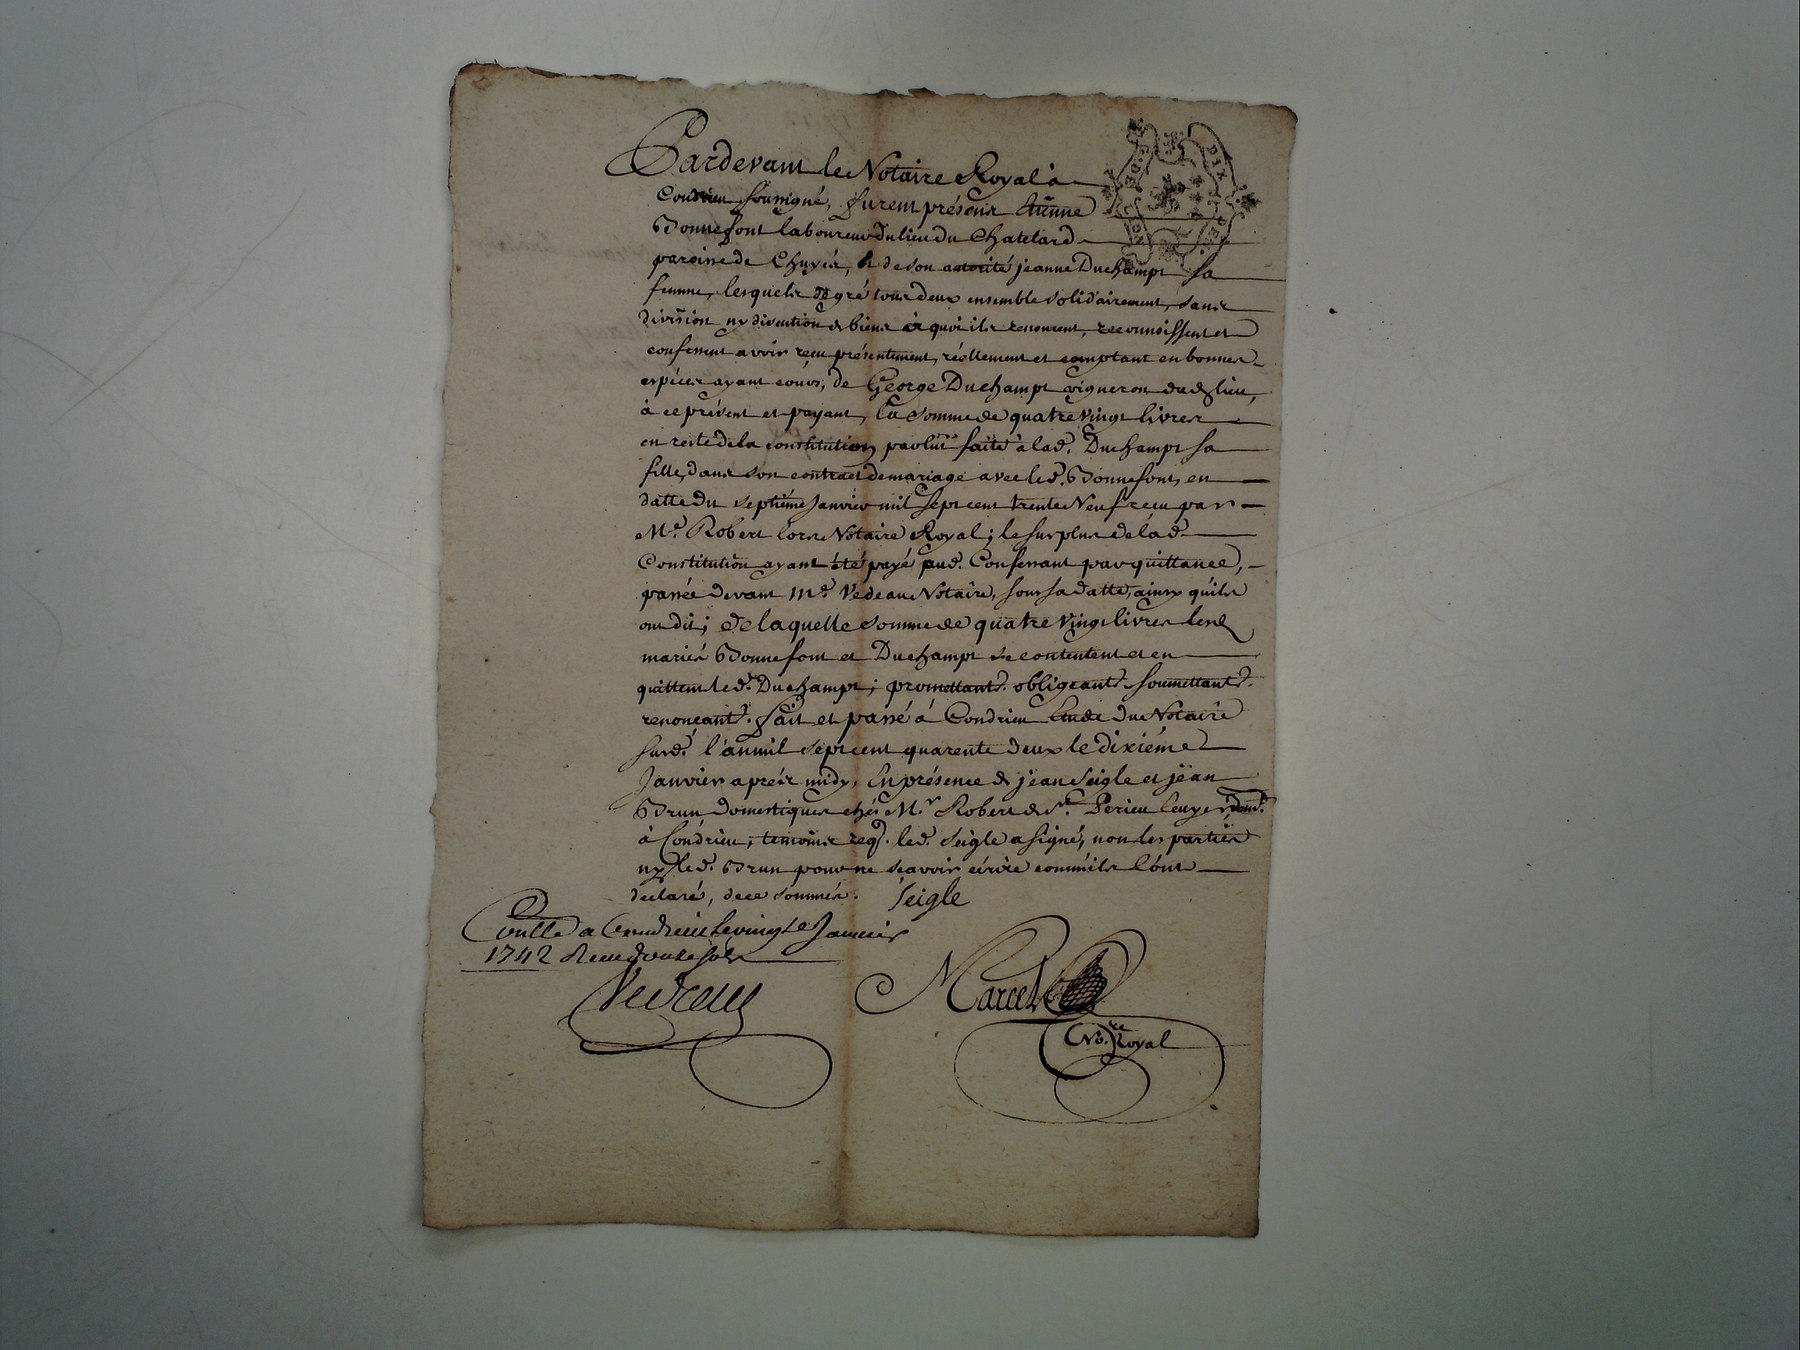 Pardevant le Notaire Royal à
Condrieu soussigné, furent présens Etienne
Bonnefont laboureur du lieu du Chatelard
paroisse de Chuyés, & de son autorité jeanne Duchamps sa
femme, lesquels de gré tous deux ensemble solidairement, sans
division ny discution de biens à quoi ils renoncent, reconnoissent et
confessent avoir reçu présentement, réellement et comptant en bonnes
espéces ayant cours, de George Duchamps vigneron dud. lieu,
à ce présent et payant, la somme de quatre vingt livres
en reste de la constitution par lui faite à lad. Duchamps sa
fille, dans son contract de mariage avec led. Bonnefont, en
datte du septiéme Janvier mil sept cent trente Neuf reçu par
Me. Robert lors Notaire Royal; le surplus de lad.
Constitution ayant été payé aud. Confessant par quittance,
passée devant Me. Vedeau Notaire, sous sa datte, ainsy qu'ils
ont dit; de laquelle somme de quatre vingt livres lesd.
mariés Bonnefont et Duchamps se contentent et en
quittent led. Duchamps; promettant. obligeant. soumettant.
renonçant. fait et passé à Condrieu Etude du Notaire
susd. l'an mil sept cent quarente deux le dixiéme
Janvier aprés midy, En présence de jean Seigle et jean
Brun domestiques chés Mr. Robert de St. Perieu Ecuyer, dem.t
à Condrieu, temoins req. led. Seigle a signé, non les parties
ny led. Brun pour ne sçavoir écrire comm'ils l'ont
declaré, de ce sommés. Seigle
Conllé a Condrieu le vingt Janvier
1742 Reçu douze sols
Vedeau
Marcel
No.re Royal